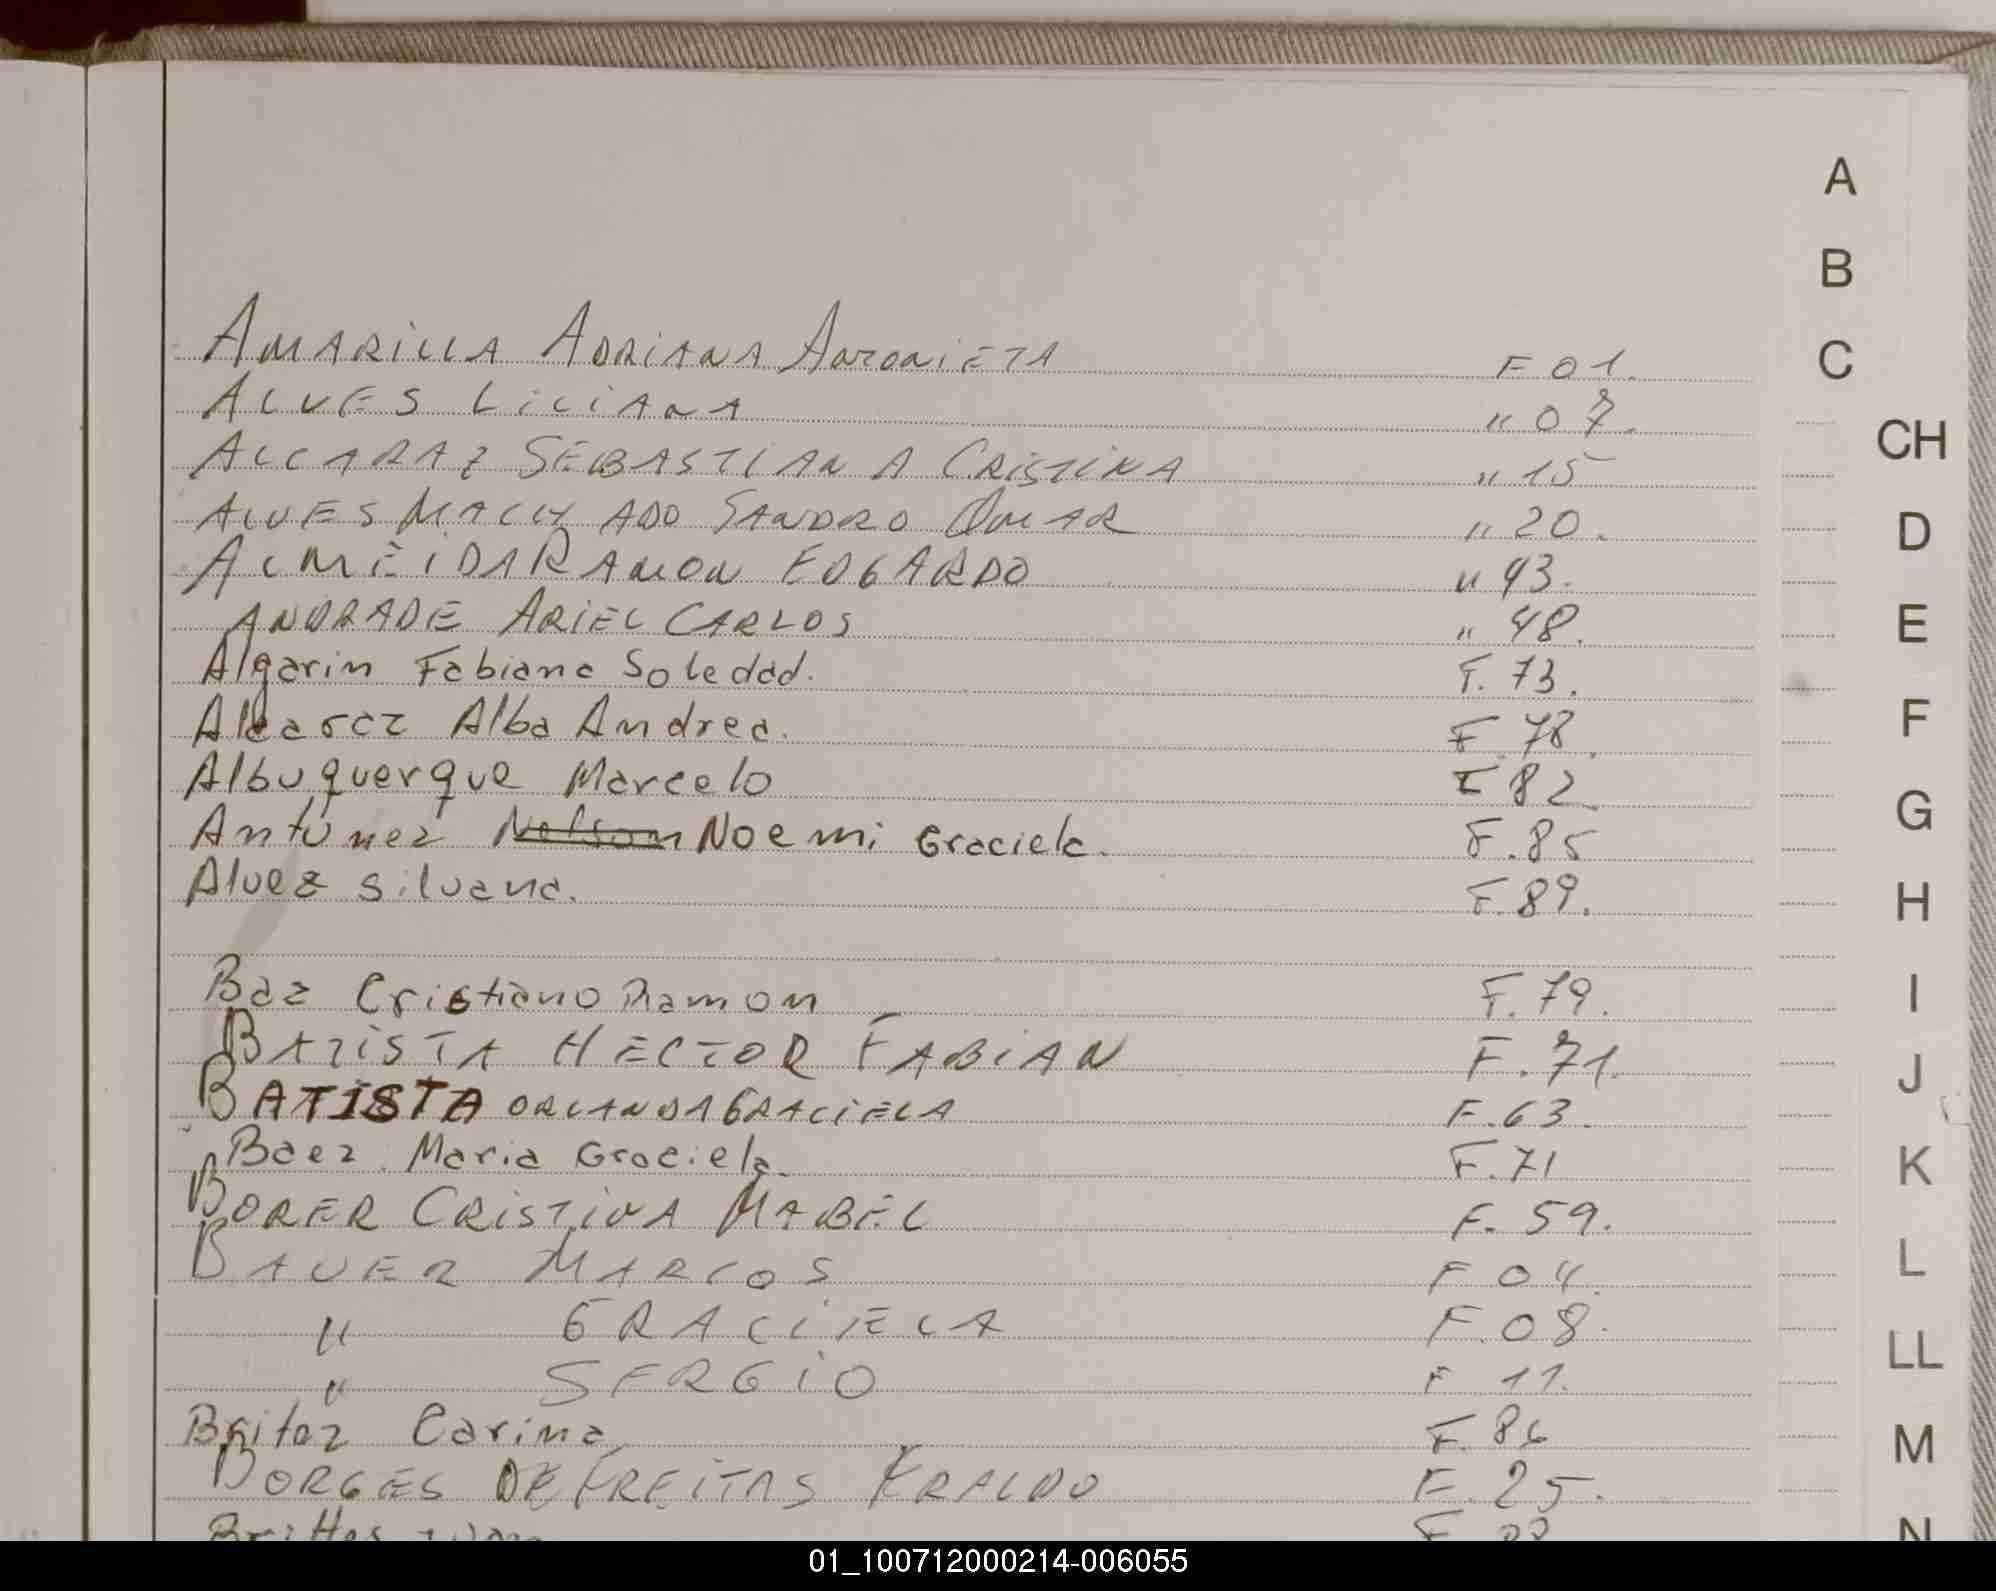 AMARILLA ADRIANA ANTONIETA F 01.
ALVES LILIANA " 07.
ALCARAZ SEBASTIAN A CRISTINA " 15
ALVES MACH ADO SANDRO OMAR " 20.
ALMEIDA RAMON EDGARDO " 43.
ANDRADE ARIEL CARLOS " 48.
Algarin Fabiana Soledad. F. 73.
Alcaraz Alba Andrea. F. 78.
Albuquerque Marcelo F 82
Antúnez Nelson Noemi Graciela. F. 85
Alvez Silvana. F. 89.
Baz Cristiano Ramon F. 79.
BATISTA HECTOR FABIAN F. 71.
BATISTA ORLANDA GRACIELA F. 63.
Baez Maria Graciela. F. 71
BORER CRISTINA MABEL F. 59.
BAUER MARCOS F 04.
" GRACIELA F. 08.
" SERGIO F 11.
Britez Carina F. 86
BORGES DE FREITAS ERALDO F. 25.
A
B
C
CH
D
E
F
G
H
I
J
K
L
LL
M
N
01_100712000214-006055